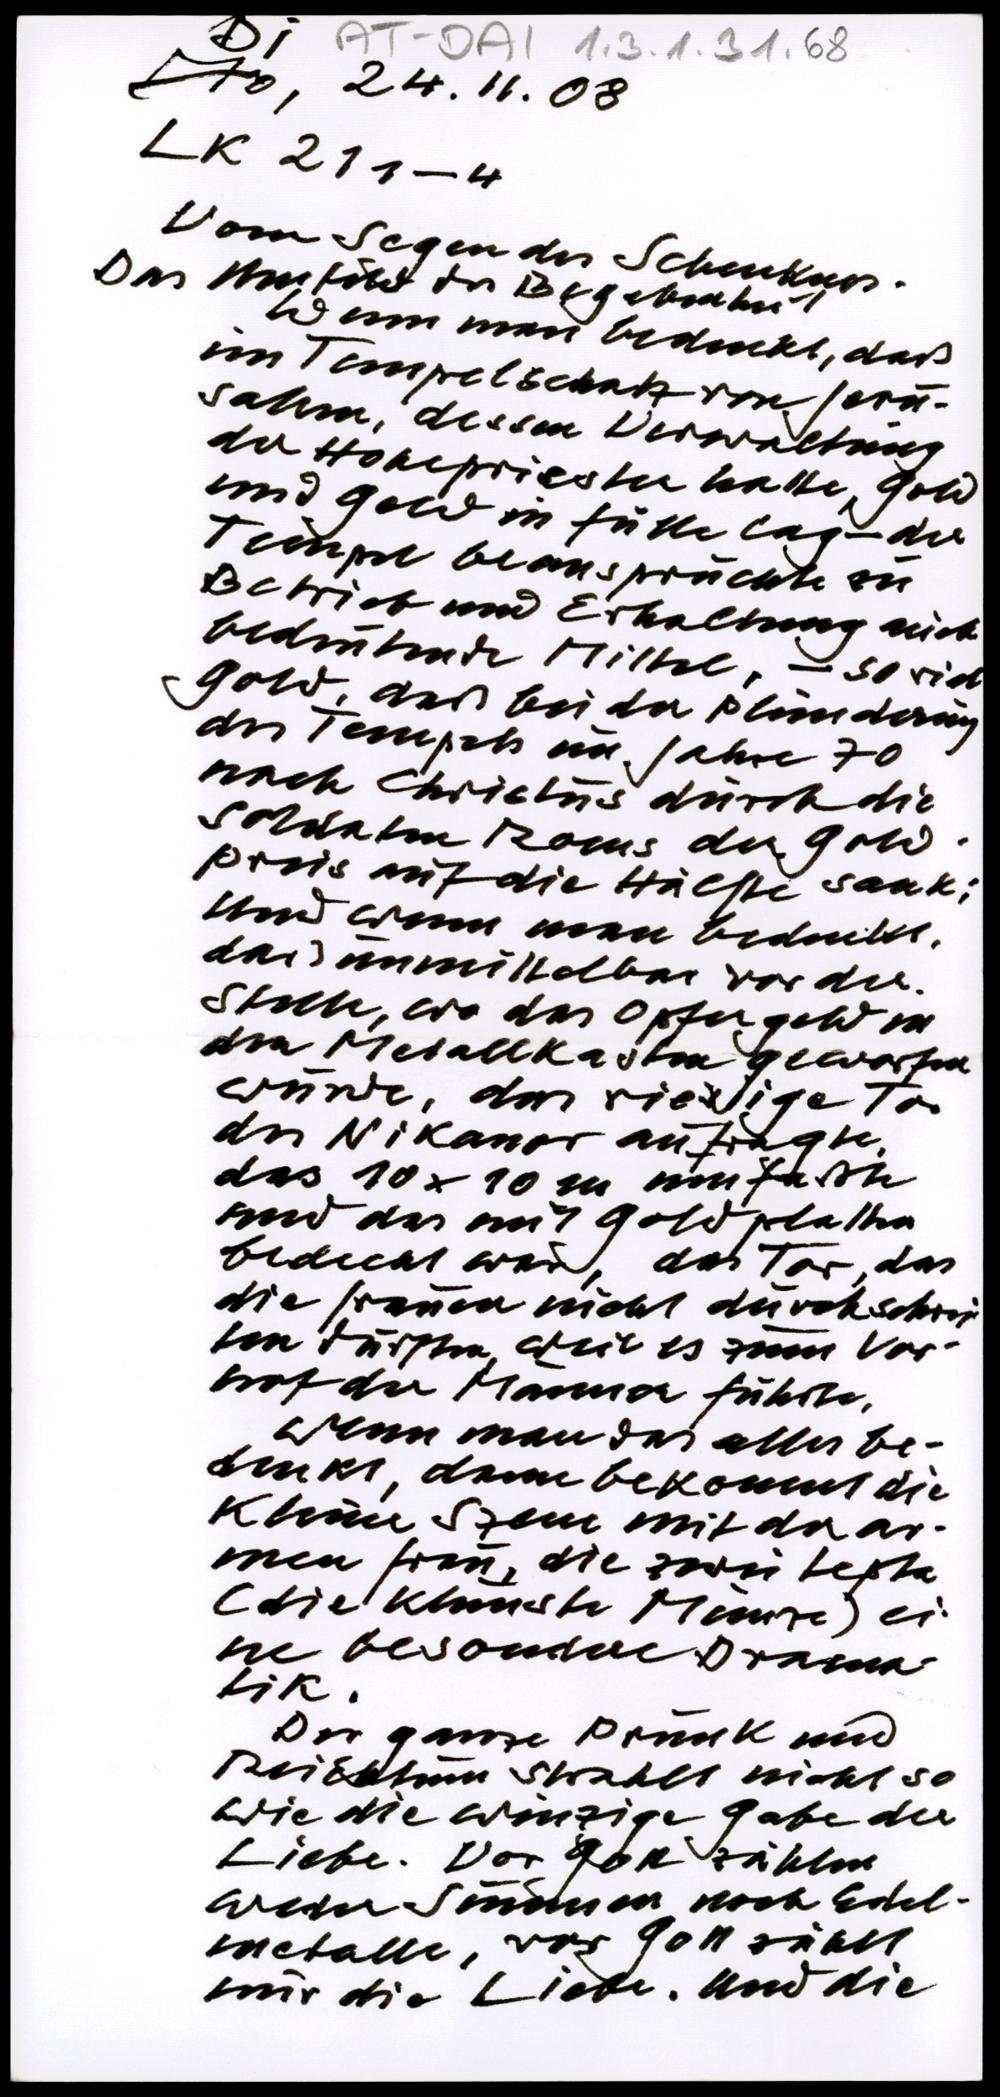 Di AT-DAI 1.3.1.31.68
Mo, 24.11.08
LK 21 1–4
Vom Segen des Schenkens.
Das Umfeld der Begebenheit
Wenn man bedenkt, daß
im Tempelschatz von Jeru-
salem, dessen Verwaltung
der Hohepriester hatte, Gold
und Geld in Fülle lag – der
Tempel beanspruchte zu
Betrieb und Erhaltung auch
bedeutende Mittel, – so viel
Gold, daß bei der Plünderung
des Tempels im Jahre 70
nach Christus durch die
Soldaten Roms der Gold-
preis auf die Hälfte sank;
Und wenn man bedenkt,
daß unmittelbar vor der
Stelle, wo das Opfergeld in
den Metallkasten geworfen
wurde, das riesige Tor
des Nikanor aufragte,
das 10 x 10 m umfaßte
und das mit Goldplatten
bedeckt war, das Tor, das
die Frauen nicht durchschrei-
ten durften, weil es zum Vor-
hof der Männer führte,
wenn man das alles be-
denkt, dann bekommt die
kleine Szene mit der ar-
men Frau, die zwei Lepta
(die kleinste Münze) ei-
ne besondere Drama-
tik.
Der ganze Prunk und
Reichtum strahlt nicht so
wie die winzige Gabe der
Liebe. Vor Gott zählen
weder Summen noch Edel-
metalle, vor Gott zählt
nur die Liebe. Und die